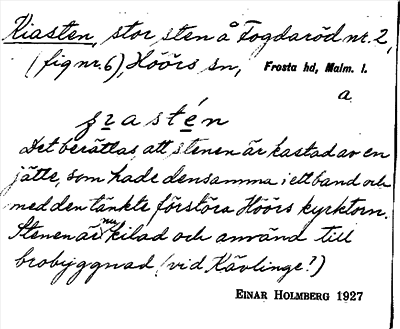 Kiasten, stor sten å Fogdaröd nr. 2,
(fig nr. 6), Höörs sn, Frosta hd, Malm. l.
a
Det berättas, att stenen är kastad av en
jätte, som hade densamma i ett band och
med den tänkte förstöra Höörs kyrktorn.
Stenen är nu kilad och använd till
brobyggnad (vid Kävlinge?)
EINAR HOLMBERG 1927